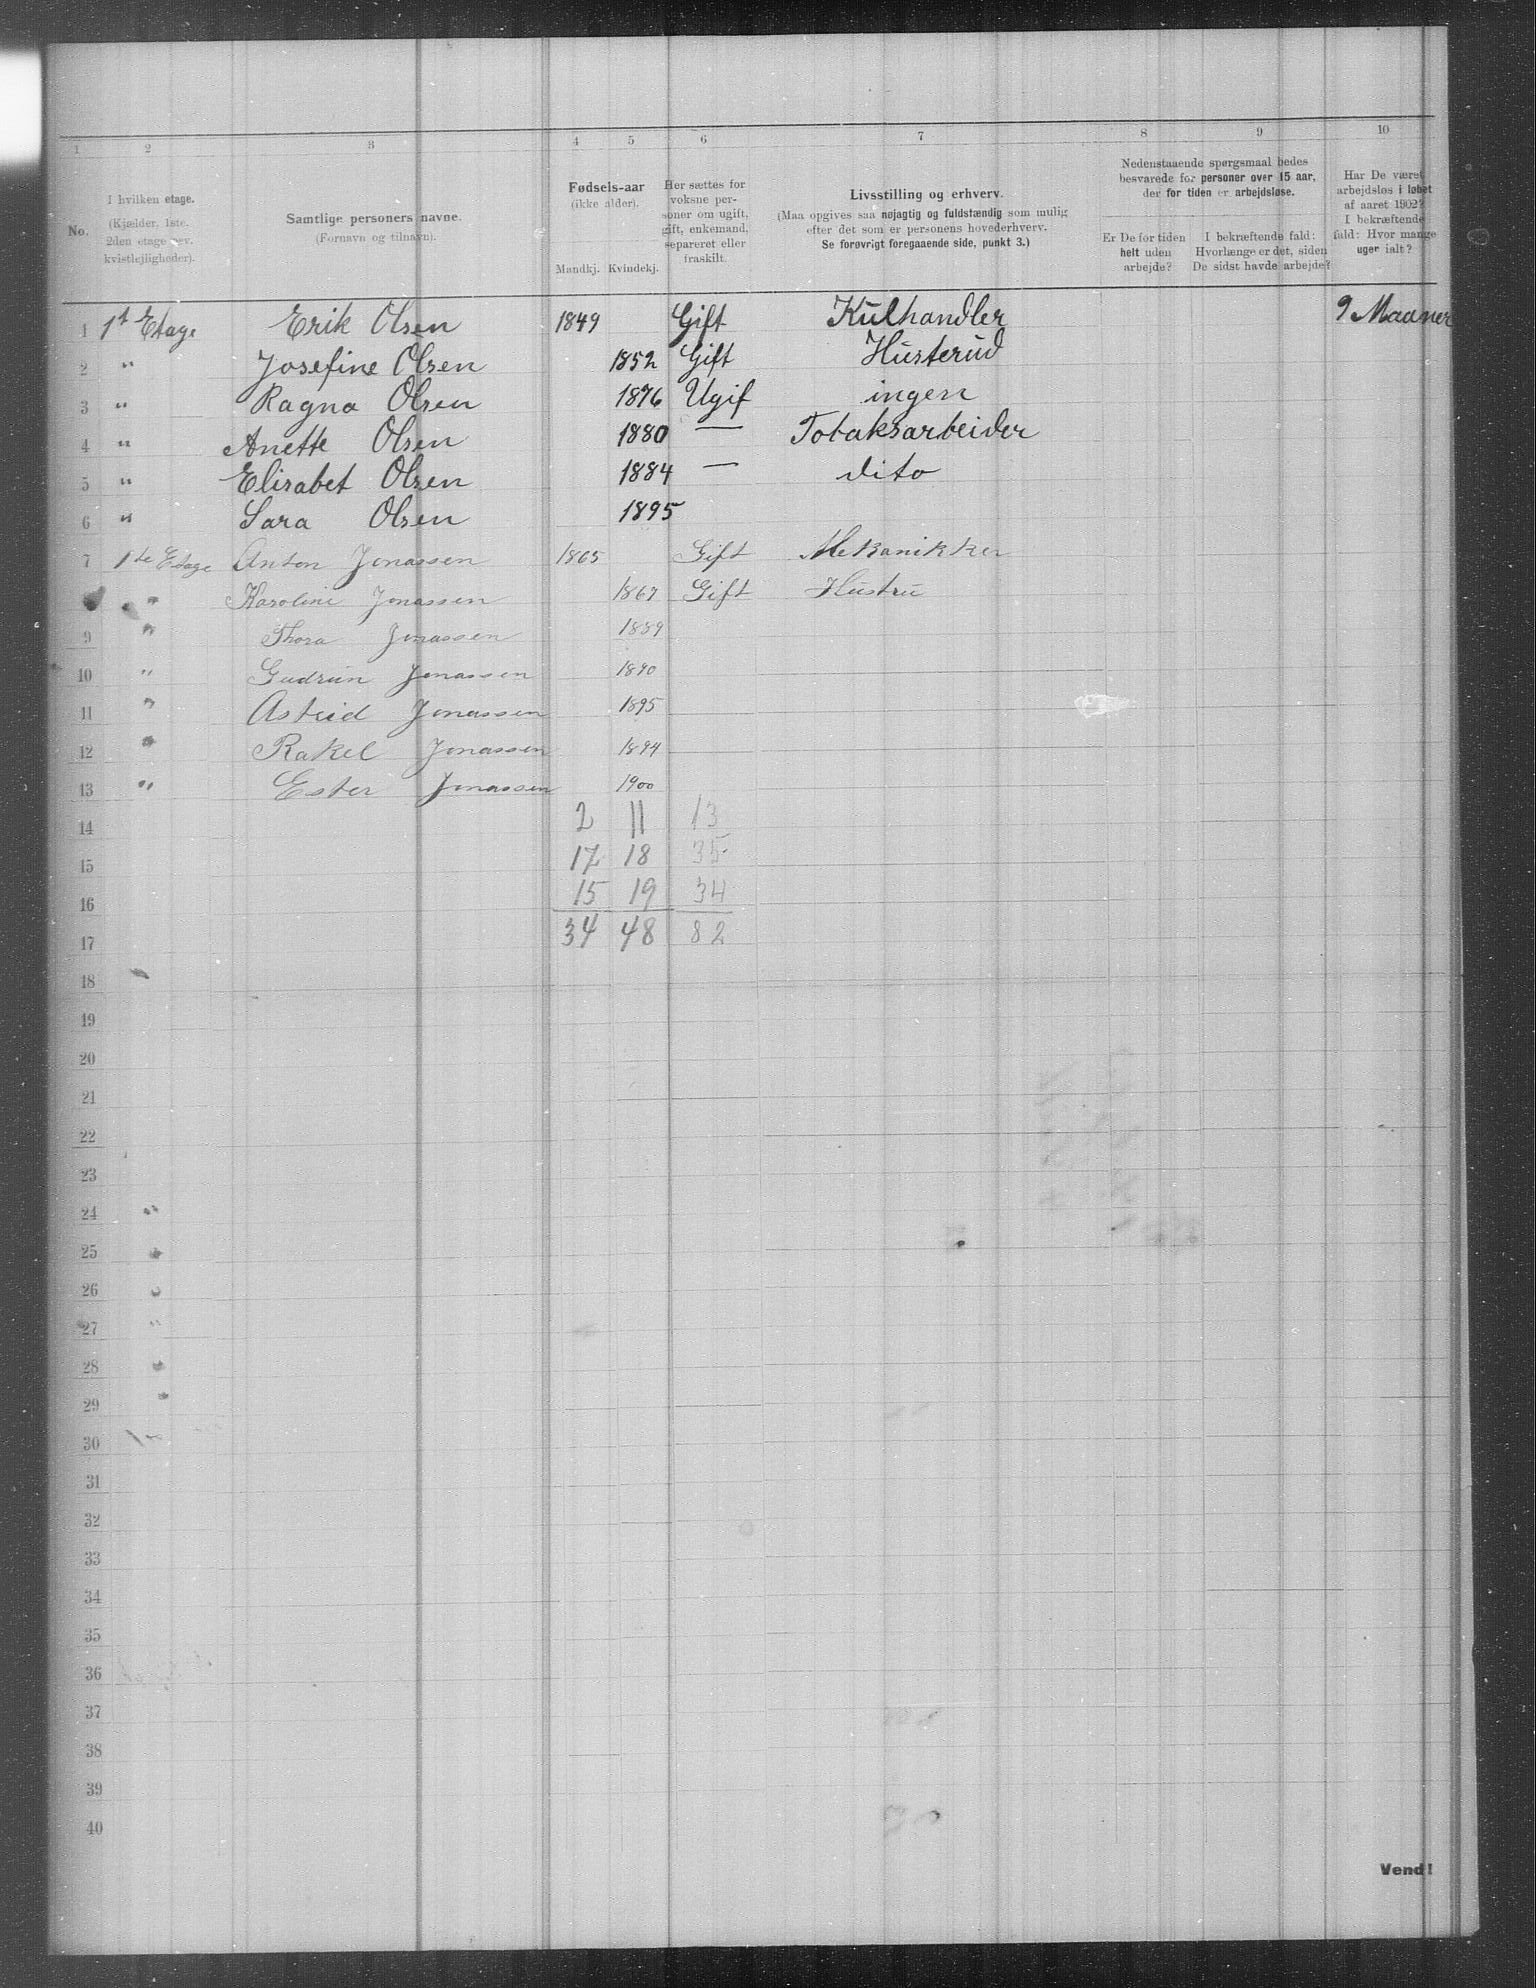 1 2 3 4 5 6 7 8 9 10
No.
I hvilken etage.
(Kjælder, 1ste.
2den etage osv.
kvistlejligheder).
Samtlige personers navne.
(Fornavn og tilnavn).
Fødsels-aar
(ikke alder).
Mandkj. Kvindekj.
Her sættes for
voksne per-
soner om ugift,
gift, enkemand,
separeret eller
fraskilt.
Livsstilling og erhverv.
(Maa opgives saa nøjagtig og fuldstændig som mulig
efter det som er personens hovederhverv.
Se forøvrigt foregaaende side, punkt 3.)
Nedenstaaende spørgsmaal bedes
besvarede for personer over 15 aar,
der for tiden er arbejdsløse.
Er De for tiden
helt uden
arbejde?
I bekræftende fald:
Hvorlænge er det, siden
De sidst havde arbejde?
Har De været
arbejdsløs i løbet
af aaret 1902?
I bekræftende
fald: Hvor mange
uger ialt?
1 1st Etage Erik Olsen 1849 Gift Kulhandler 9 Maaner
2 " Josefine Olsen 1852 Gift Husterud
3 " Ragna Olsen 1876 Ugif ingen
4 " Anette Olsen 1880 — Tobaksarbeider
5 " Elisabet Olsen 1884 — dito
6 " Sara Olsen 1895
7 1ste Etage Anton Jonassen 1865 Gift Mekanikker
" Karoline Jonassen 1867 Gift Hustru
9 " Thora Jonassen 1889
10 " Gudrun Jonassen 1890
11 " Astrid Jonassen 1895
12 " Rakel Jonassen 1894
13 " Ester Jonassen 1900
14 2 11 13
15 17 18 35
16 15 19 34
17 34 48 82
18
19
20
21
22
23
24 "
25 "
26 "
27 "
28 "
29 "
30
31
32
33
34
35
36
37
38
39
40
Vend!